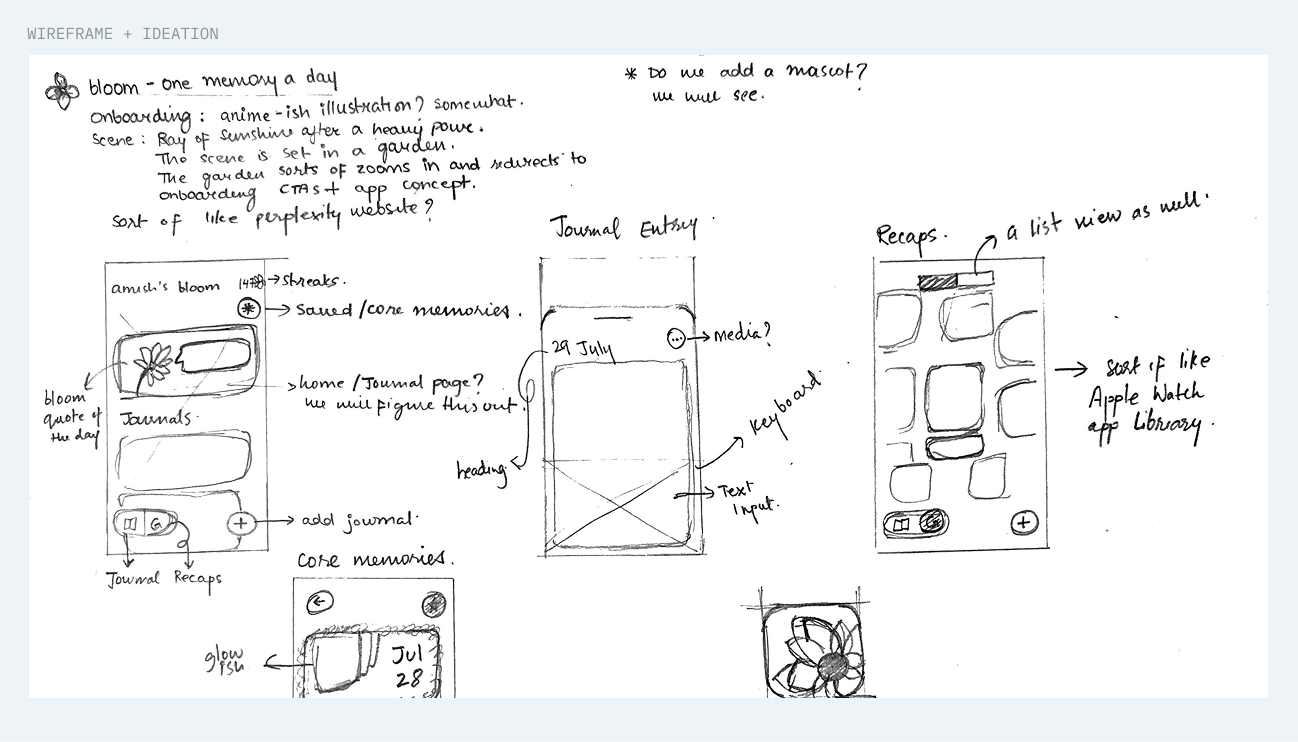 WIREFRAME + IDEATION
bloom - one memory a day
onboarding : anime-ish illustration? somewhat.
Scene : Ray of sunshine after a heavy pour.
The scene is set in a garden.
The garden sorts of zooms in and redirects to
onboarding CTAs + app concept.
Sort of like perplexity website?
* Do we add a mascot?
we will see.
anush's bloom
→ Streaks.
→ Saved /core memories.
bloom
quote of
the day
→ home /Journal page?
we will figure this out.
Journals.
→ add journal.
Journal Recaps
Journal Entry.
29 July
→ media?
heading
Keyboard.
→ Text
Input.
Recaps.
a list view as well.
→ sort if like
Apple Watch
app Library.
core memories.
glow
ish
Jul
28